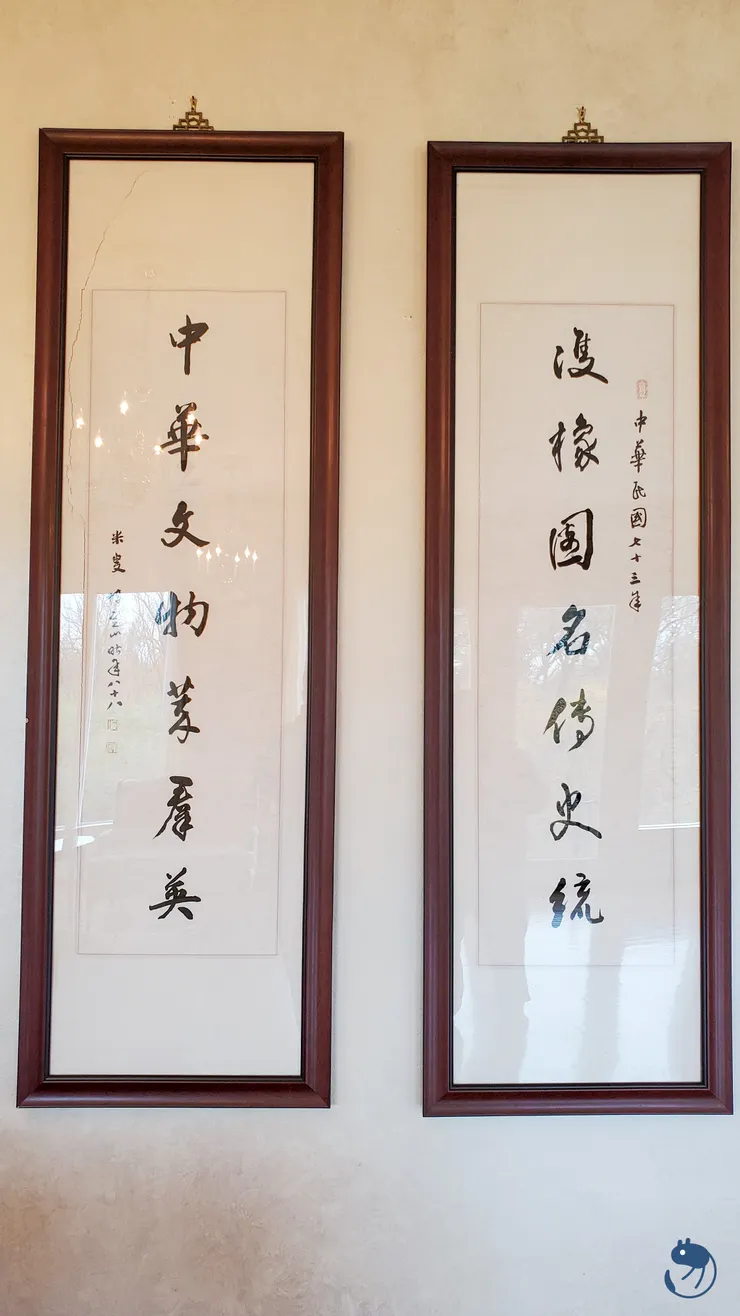 中華民國七十三年
雙橡園名傳史統
中華文物萃群英
米叟
時年八十八